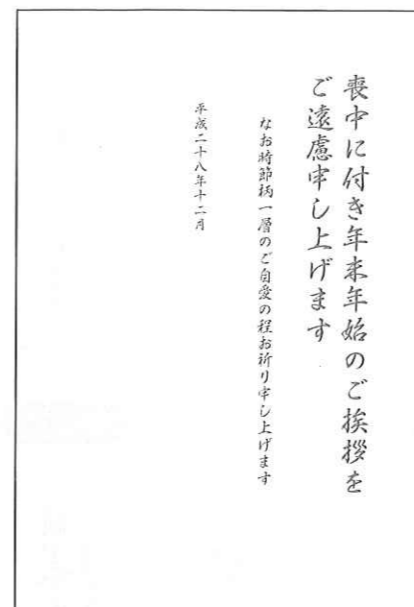 喪中に付き年末年始のご挨拶を
ご遠慮申し上げます
なお時節柄一層のご自愛の程お祈り申し上げます
平成二十八年十二月